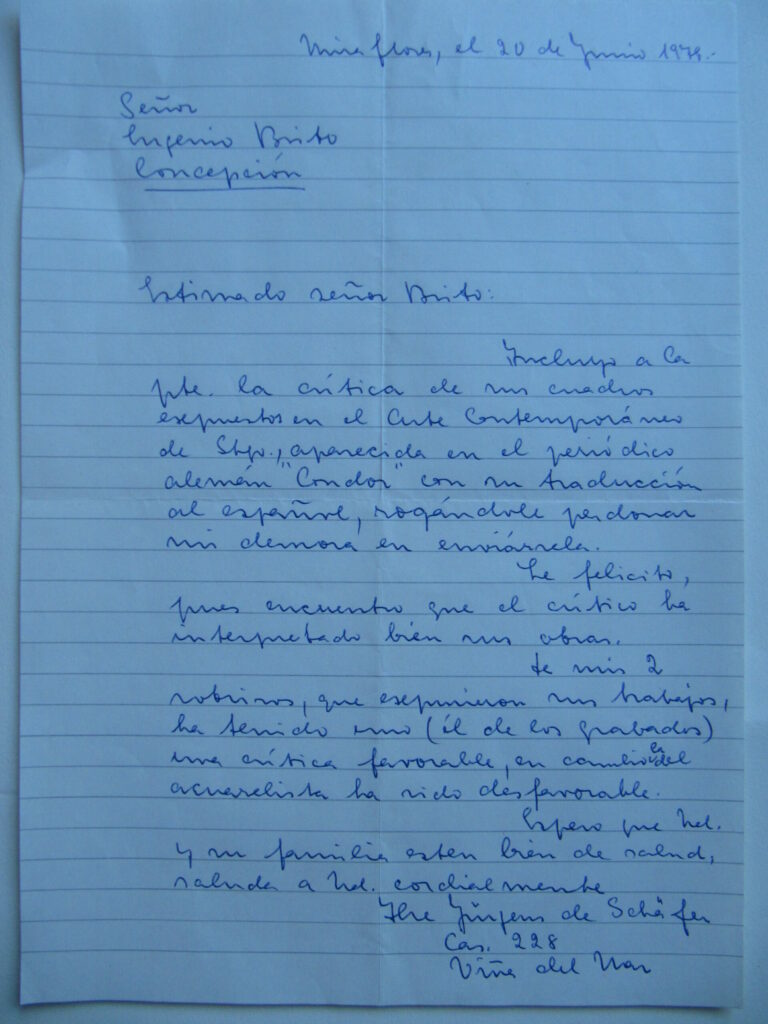 Miraflores, el 20 de Junio 1979.
Señor
Eugenio Brito
Concepción
Estimado señor Brito:
Incluyo a la
pte. la crítica de sus cuadros
expuestos en el Arte Contemporáneo
de Stgo., aparecida en el periódico
alemán "Condor" con su traducción
al español, rogándole perdonar
mi demora en enviársela.
Le felicito,
pues encuentro que el crítico ha
interpretado bien sus obras.
De mis 2
sobrinos, que expusieron sus trabajos,
ha tenido uno (él de los grabados)
una crítica favorable, en cambio la del
acuarelista ha sido desfavorable.
Espero que Ud.
y su familia esten bién de salud,
saluda a Ud. cordialmente
Ilse Jürgens de Schäfer
Cas. 228
Viña del Mar